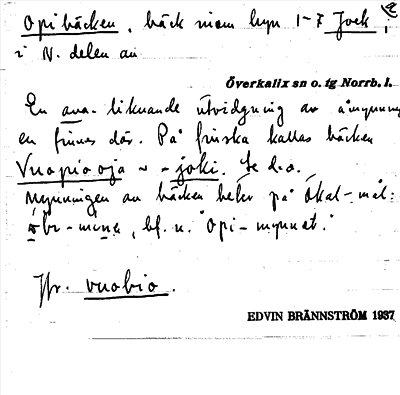 Opibäcken, bäck inom byn 1-7 Jock,
i N. delen av
Överkalix sn o. tg Norrb. l.
En ava-liknande utvidgning av åmynning
en finnes där. På finska kallas bäcken
Vuopio oja ~ -joki. Se d.o.
Mynningen av bäcken heter på Ökal-mål:
bf. n. "Opi-mynnat."
Jfr. vuobio.
EDVIN BRÄNNSTRÖM 1937